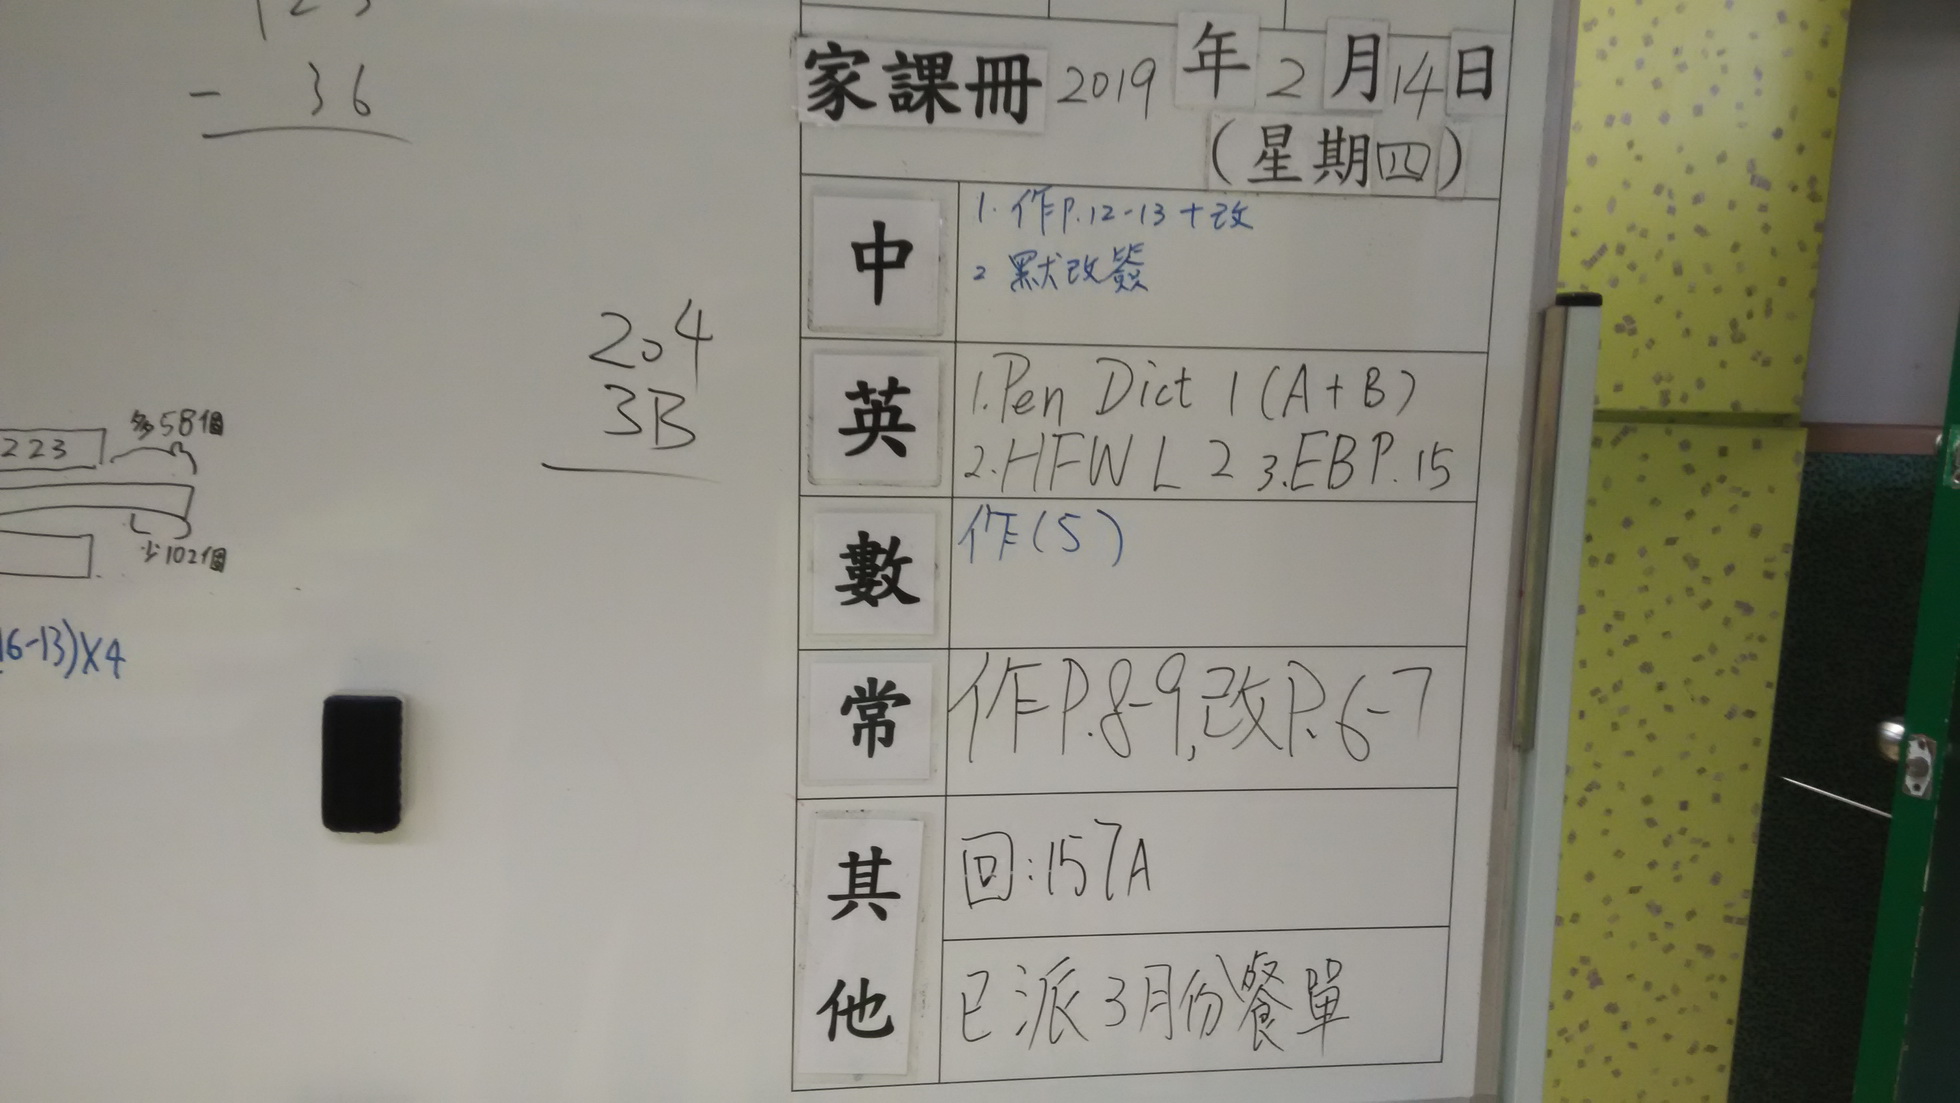 - 36
多58個
223
少102個
16-13)×4
204
3B
家課冊 2019 年 2 月 14 日
(星期四)
中
1. 作P.12-13+改
2 默改簽
英
1. Pen Dict 1 (A+B)
2. HFW L 2 3. EB P.15
數
作(5)
常
作P.8-9,改P.6-7
其他
回:157A
已派3月份餐單